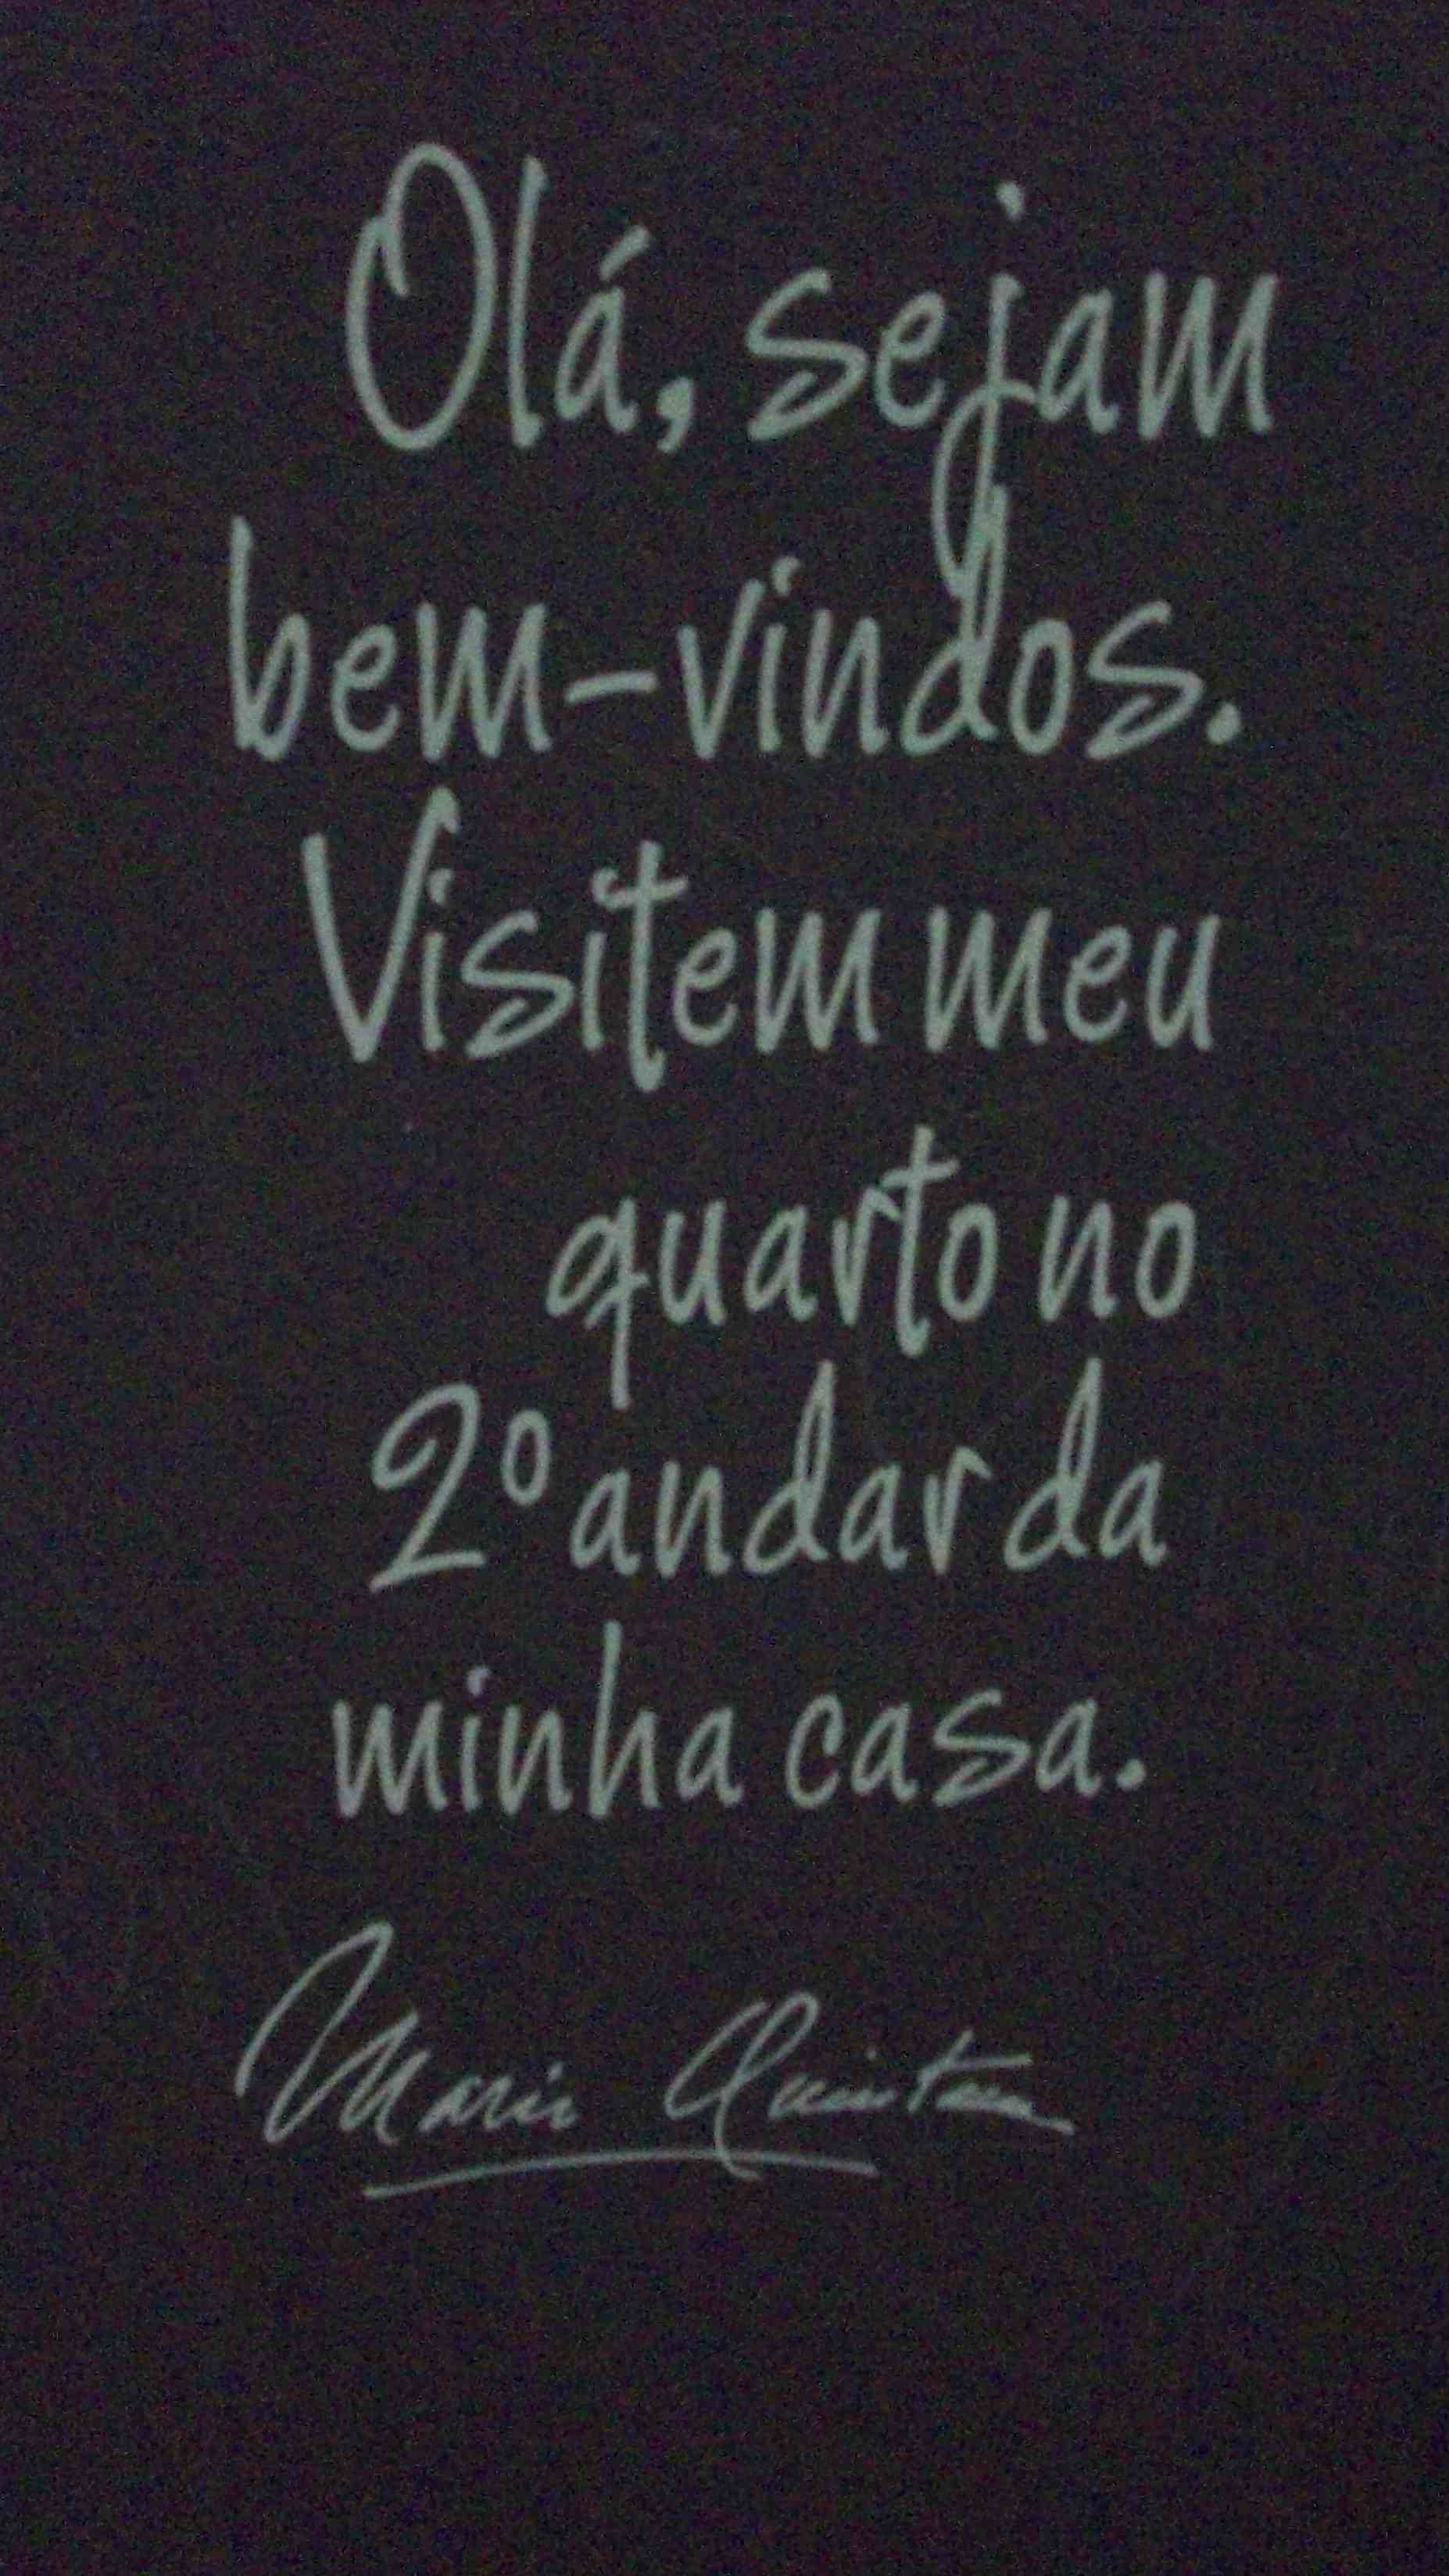 Olá, sejam
bem-vindos.
Visitem meu
quarto no
2º andar da
minha casa.
Mario Quintana